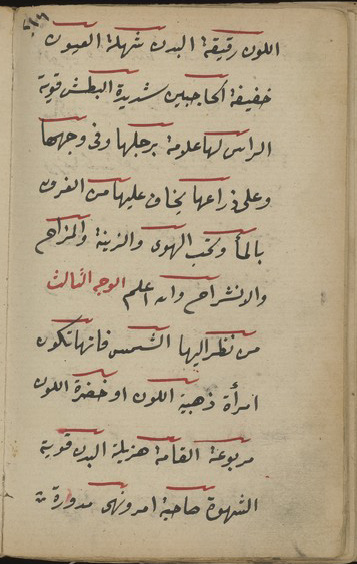 اللون رقيقة البدن شهلة العيون
خفيفة الحاجبين شديدة البطش قوية
الراس لها علامة برجلها وفى وجهها
وعلى ذراعها يخاف عليها من الغرق
بالمأ وتحب الهوى والزينة والمزاح
والانشراح والله اعلم الوجه الثالث
من نظر اليها الشمس فانها تكون
امرأة ذهبية اللون او خضرة اللون
مربوعة القامة هزيلة البدن قوية
الشهوة صاحبة امر ونهى مدورة